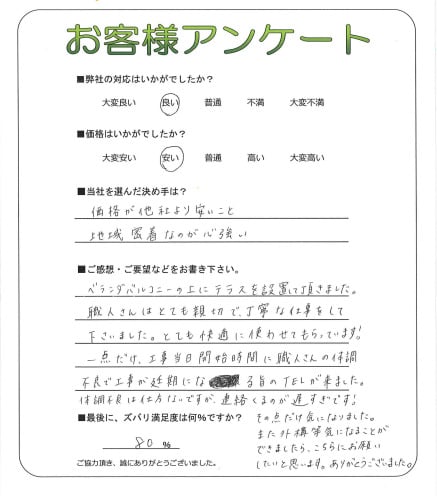 お客様アンケート
■弊社の対応はいかがでしたか？
大変良い 良い 普通 不満 大変不満
■価格はいかがでしたか？
大変安い 安い 普通 高い 大変高い
■当社を選んだ決め手は？
価格が他社より安いこと
地域密着なのが心強い
■ご感想・ご要望などをお書き下さい。
ベランダバルコニーの上にテラスを設置して頂きました。
職人さんはとても親切で、丁寧な仕事をして
下さいました。とても快適に使わせてもらっています!
一点だけ、工事当日開始時間に職人さんの体調
不良で工事が延期になる旨のTELが来ました。
体調不良は仕方ないですが、連絡くるのが遅すぎです!
その点だけ気になりました。
また外構等気になることが
できましたら、こちらにお願い
したいと思います。ありがとうございました。
■最後に、ズバリ満足度は何%ですか？
80 %
ご協力頂き、誠にありがとうございました。